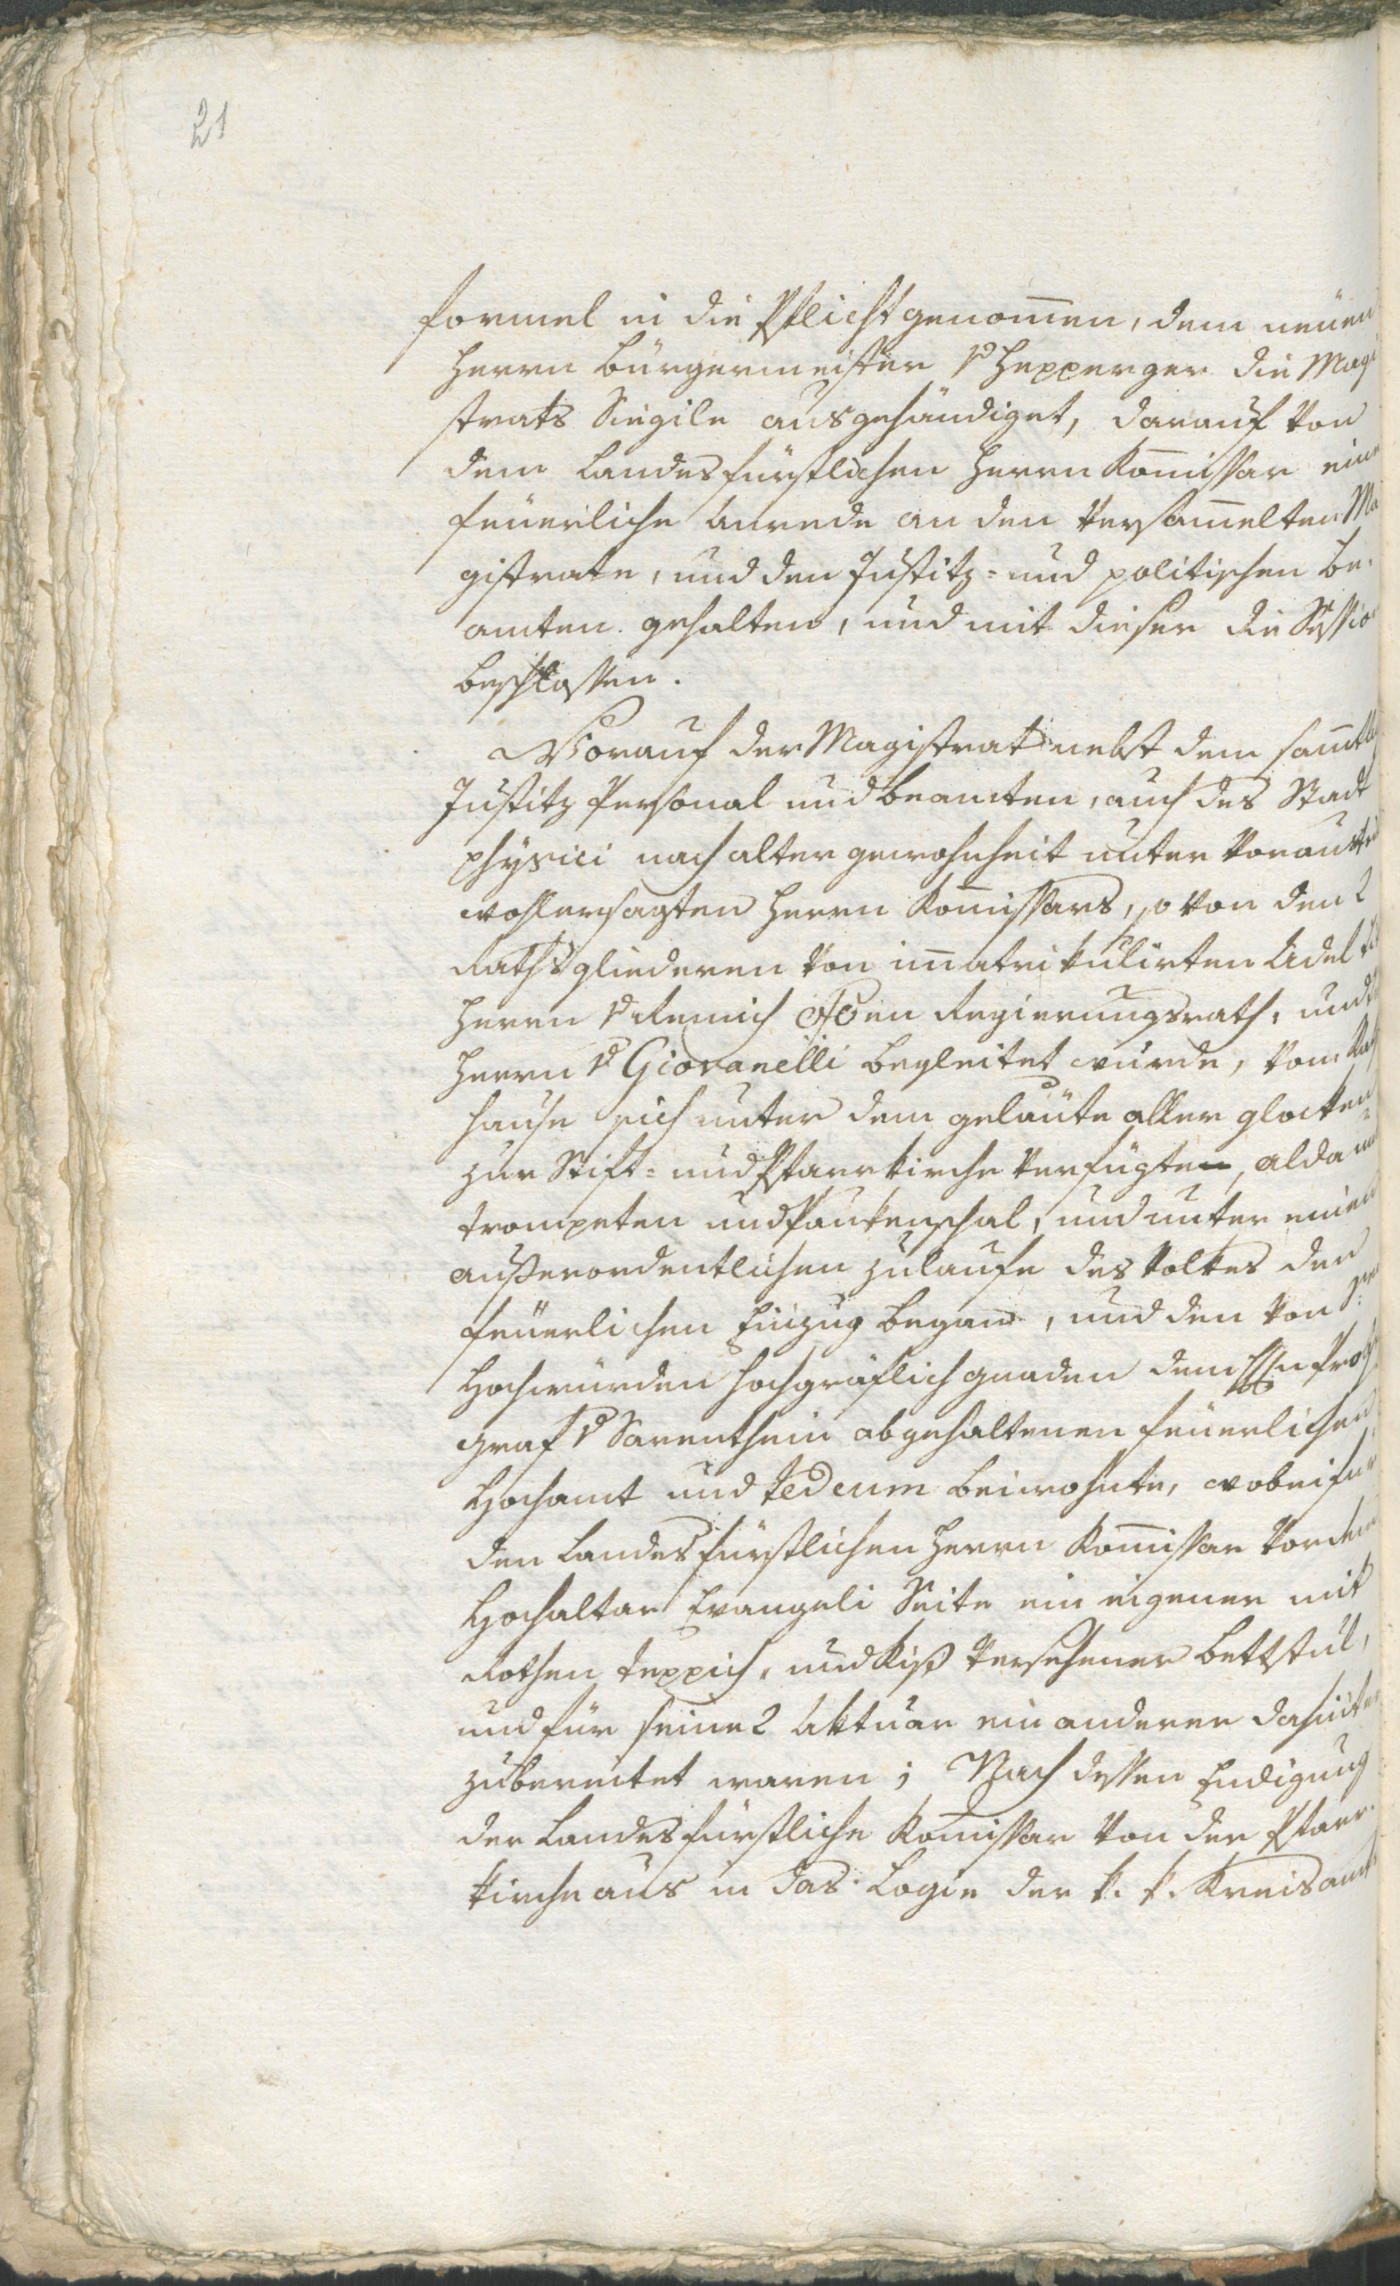 21
formel in die Pflicht genom̅en, dem neüen
Herrn Bürgermeister v Hepperger die Magi
strats Siegile ausgehändiget, darauf von
dem Landesfürstlichen Herrn Kom̅issar eine
feuerliche Anrede an den versam̅elten Ma
gistrate, und den Justitz= und politischen Be,
amten gehalten, und mit dieser die Session
beschlossen.
Worauf der Magistrat nebst dem sam̅tl
Justitz Personal und Beamten, auch des Stadt
physici nach alter gewohnheit unter
wohlersagten Herrn Kom̅issars, so von den 2
Rathsgliederen von im̅atrikulirten Adel
Herrn v Remich OÖen Regierungsrath, und
Herrn v Giovanelli begleitet wurde, vom Rath
hause sich unter dem geläute aller glocken
zur Stift= und Pfarrkirche verfügte, alda
trompeten und Paukenschal, und unter einen
außerordentlichen zulaufe des Volkes den
feuerlichen Einzug began, und den von Sr
Hochwürden hochgräflich gnaden dem Hhn Probst
graf v Sarenthein abgehaltenen feuerlichen
Hochamt und tedeum beiwohnte, wobei für
den Landesfürstlichen Herrn Kom̅issar vor dem
Hochaltar Evangeli Seite ein eigener mit
Rothen teppich, und Kiß versehener bettstul,
und für seine 2 Aktuar ein anderer dahinter
zubereitet waren; Nach dessen Endigung
der Landesfürstliche Kom̅issar von der Pfarr,
kirche aus in das Logie der k. k. Kreisamts